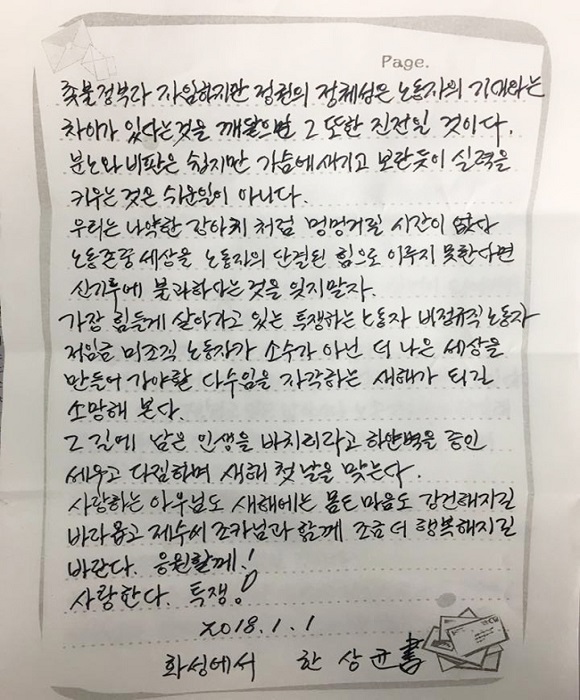 Page.
촛불정부라 자임하지만 정권의 정체성은 노동자의 기대와는
차이가 있다는것을 깨달으면 그 또한 진전일 것이다.
분노와 비판은 쉽지만 가슴에 새기고 보란듯이 실력을
키우는 것은 쉬운일이 아니다.
우리는 나약한 강아지 처럼 멍멍거릴 시간이 없다
노동존중세상을 노동자의 단결된 힘으로 이루지 못한다면
신기루에 불과하다는 것을 잊지말자.
가장 힘들게 살아가고 있는 투쟁하는 노동자 비정규직 노동자
저임금 미조직 노동자가 소수가 아닌 더 나은 세상을
만들어 가야할 다수임을 자각하는 새해가 되길
소망해 본다
그 길에 남은 인생을 바치리라고 하얀벽을 증인
세우고 다짐하며 새해 첫 날을 맞는다.
사랑하는 아우님도 새해에는 몸도 마음도 강건해지길
바라옵고 제수씨 조카님과 함께 조금 더 행복해지길
바란다. 응원할께!
사랑한다. 투쟁!
2018.1.1
화성에서 한상균 書